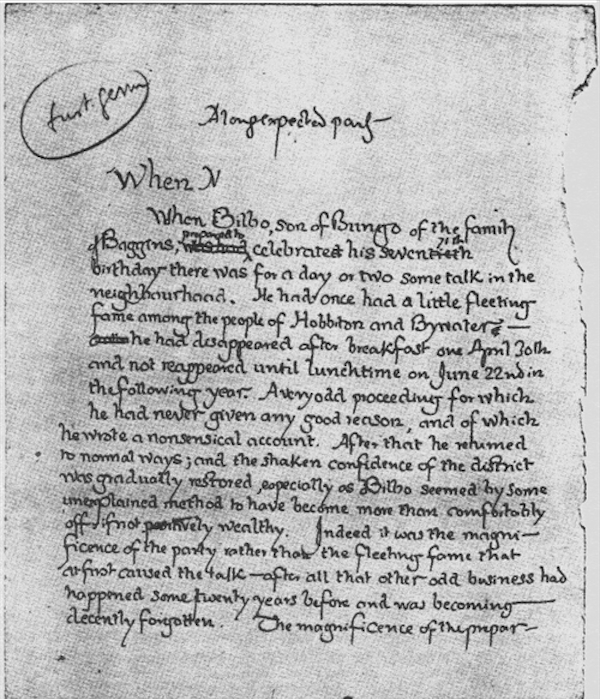 first germ
A long expected party
When N
When Bilbo, son of Bungo of the family
prepared to 71st
of Baggins, was had celebrated his seventieth
birthday there was for a day or two some talk in the
neighbourhood. He had once had a little fleeting
fame among the people of Hobbiton and Bywater —
he had disappeared after breakfast one April 30th
and not reappeared until lunchtime on June 22nd in
the following year. A very odd proceeding for which
he had never given any good reason, and of which
he wrote a nonsensical account. After that he returned
to normal ways; and the shaken confidence of the district
was gradually restored, especially as Bilbo seemed by some
unexplained method to have become more than comfortably
off if not positively wealthy. Indeed it was the magni-
ficence of the party rather than the fleeting fame that
at first caused the talk — after all that other odd business had
happened some twenty years before and was becoming
decently forgotten. The magnificence of the prepar-